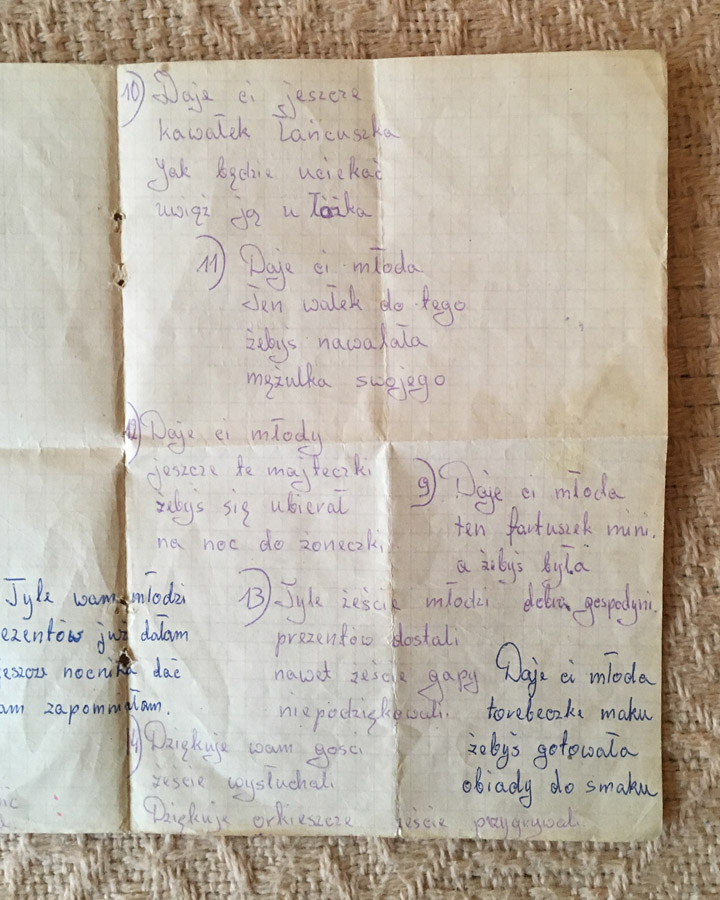 10) Daje ci jeszcze
kawałek Łańcuszka
Jak będzie uciekać
uwiąż ją u łóżka
11) Daje ci młoda
Ten wałek do tego
żebyś nawałała
mężulka swojego
12) Daje ci młody
jeszcze te majteczki
żebyś się ubierał
na noc do żoneczki
9) Daje ci młoda
ten fartuszek mini.
a żebyś była
dobra gospodyni.
13) Tyle żeście młodzi
prezentów dostali
nawet żeście gapy
niepodziękowali.
Tyle wam młodzi
ezentów już dałam
eszcze nocnika dać
am zapomniałam.
Daje ci młoda
torebeczkę maku
żebyś gotowała
obiady do smaku
14) Dziękuje wam gości
żeście wysłuchali
Dziękuje orkieszcze żeście przygrywali